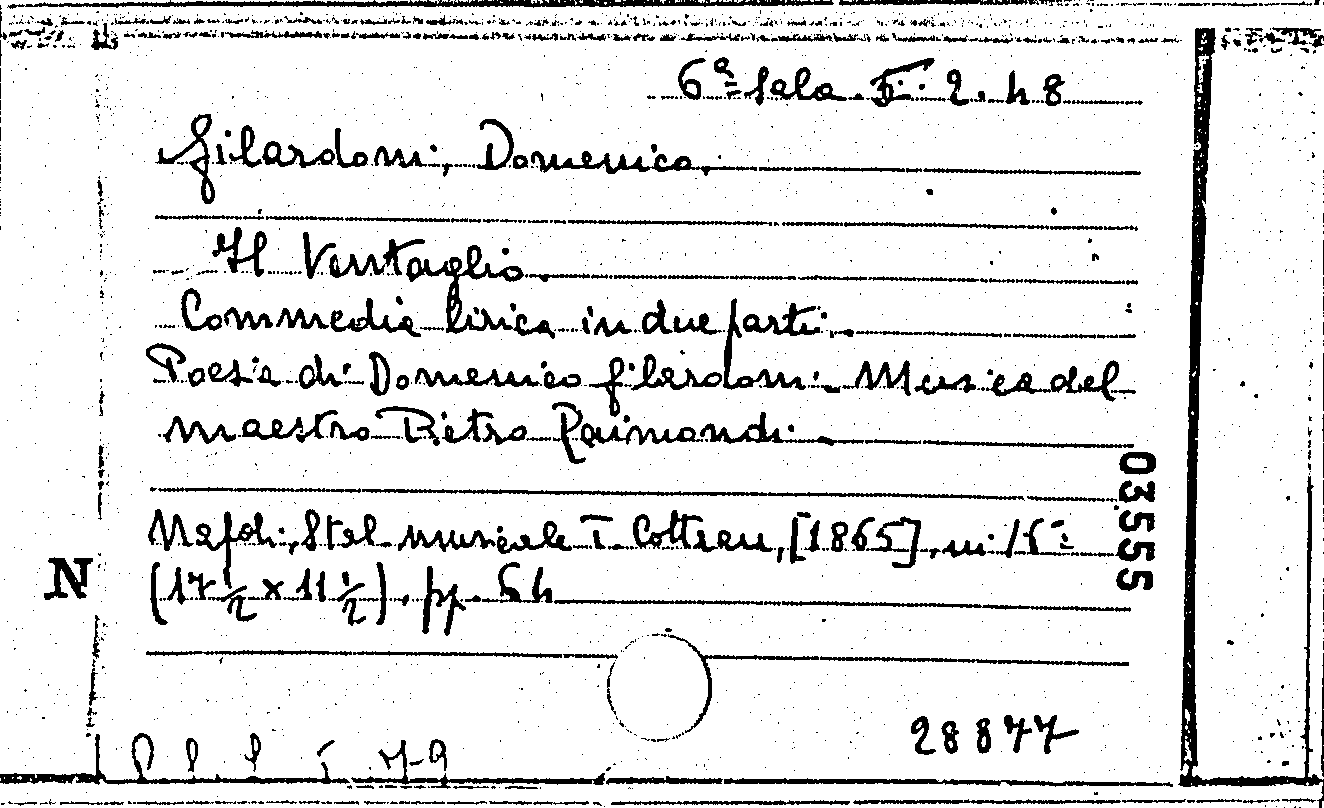 6ª Sala. F. 2. 48
Gilardoni, Domenico.
Il Ventaglio.
Commedia lirica in due parti.
Poesia di Domenico Gilardoni. Musica del
maestro Pietro Raimondi.
Napoli, Stab. musicale T. Cottrau, [1865], in 16º
(17 1/2 x 11 1/2), pp. 64
N
03555
28877